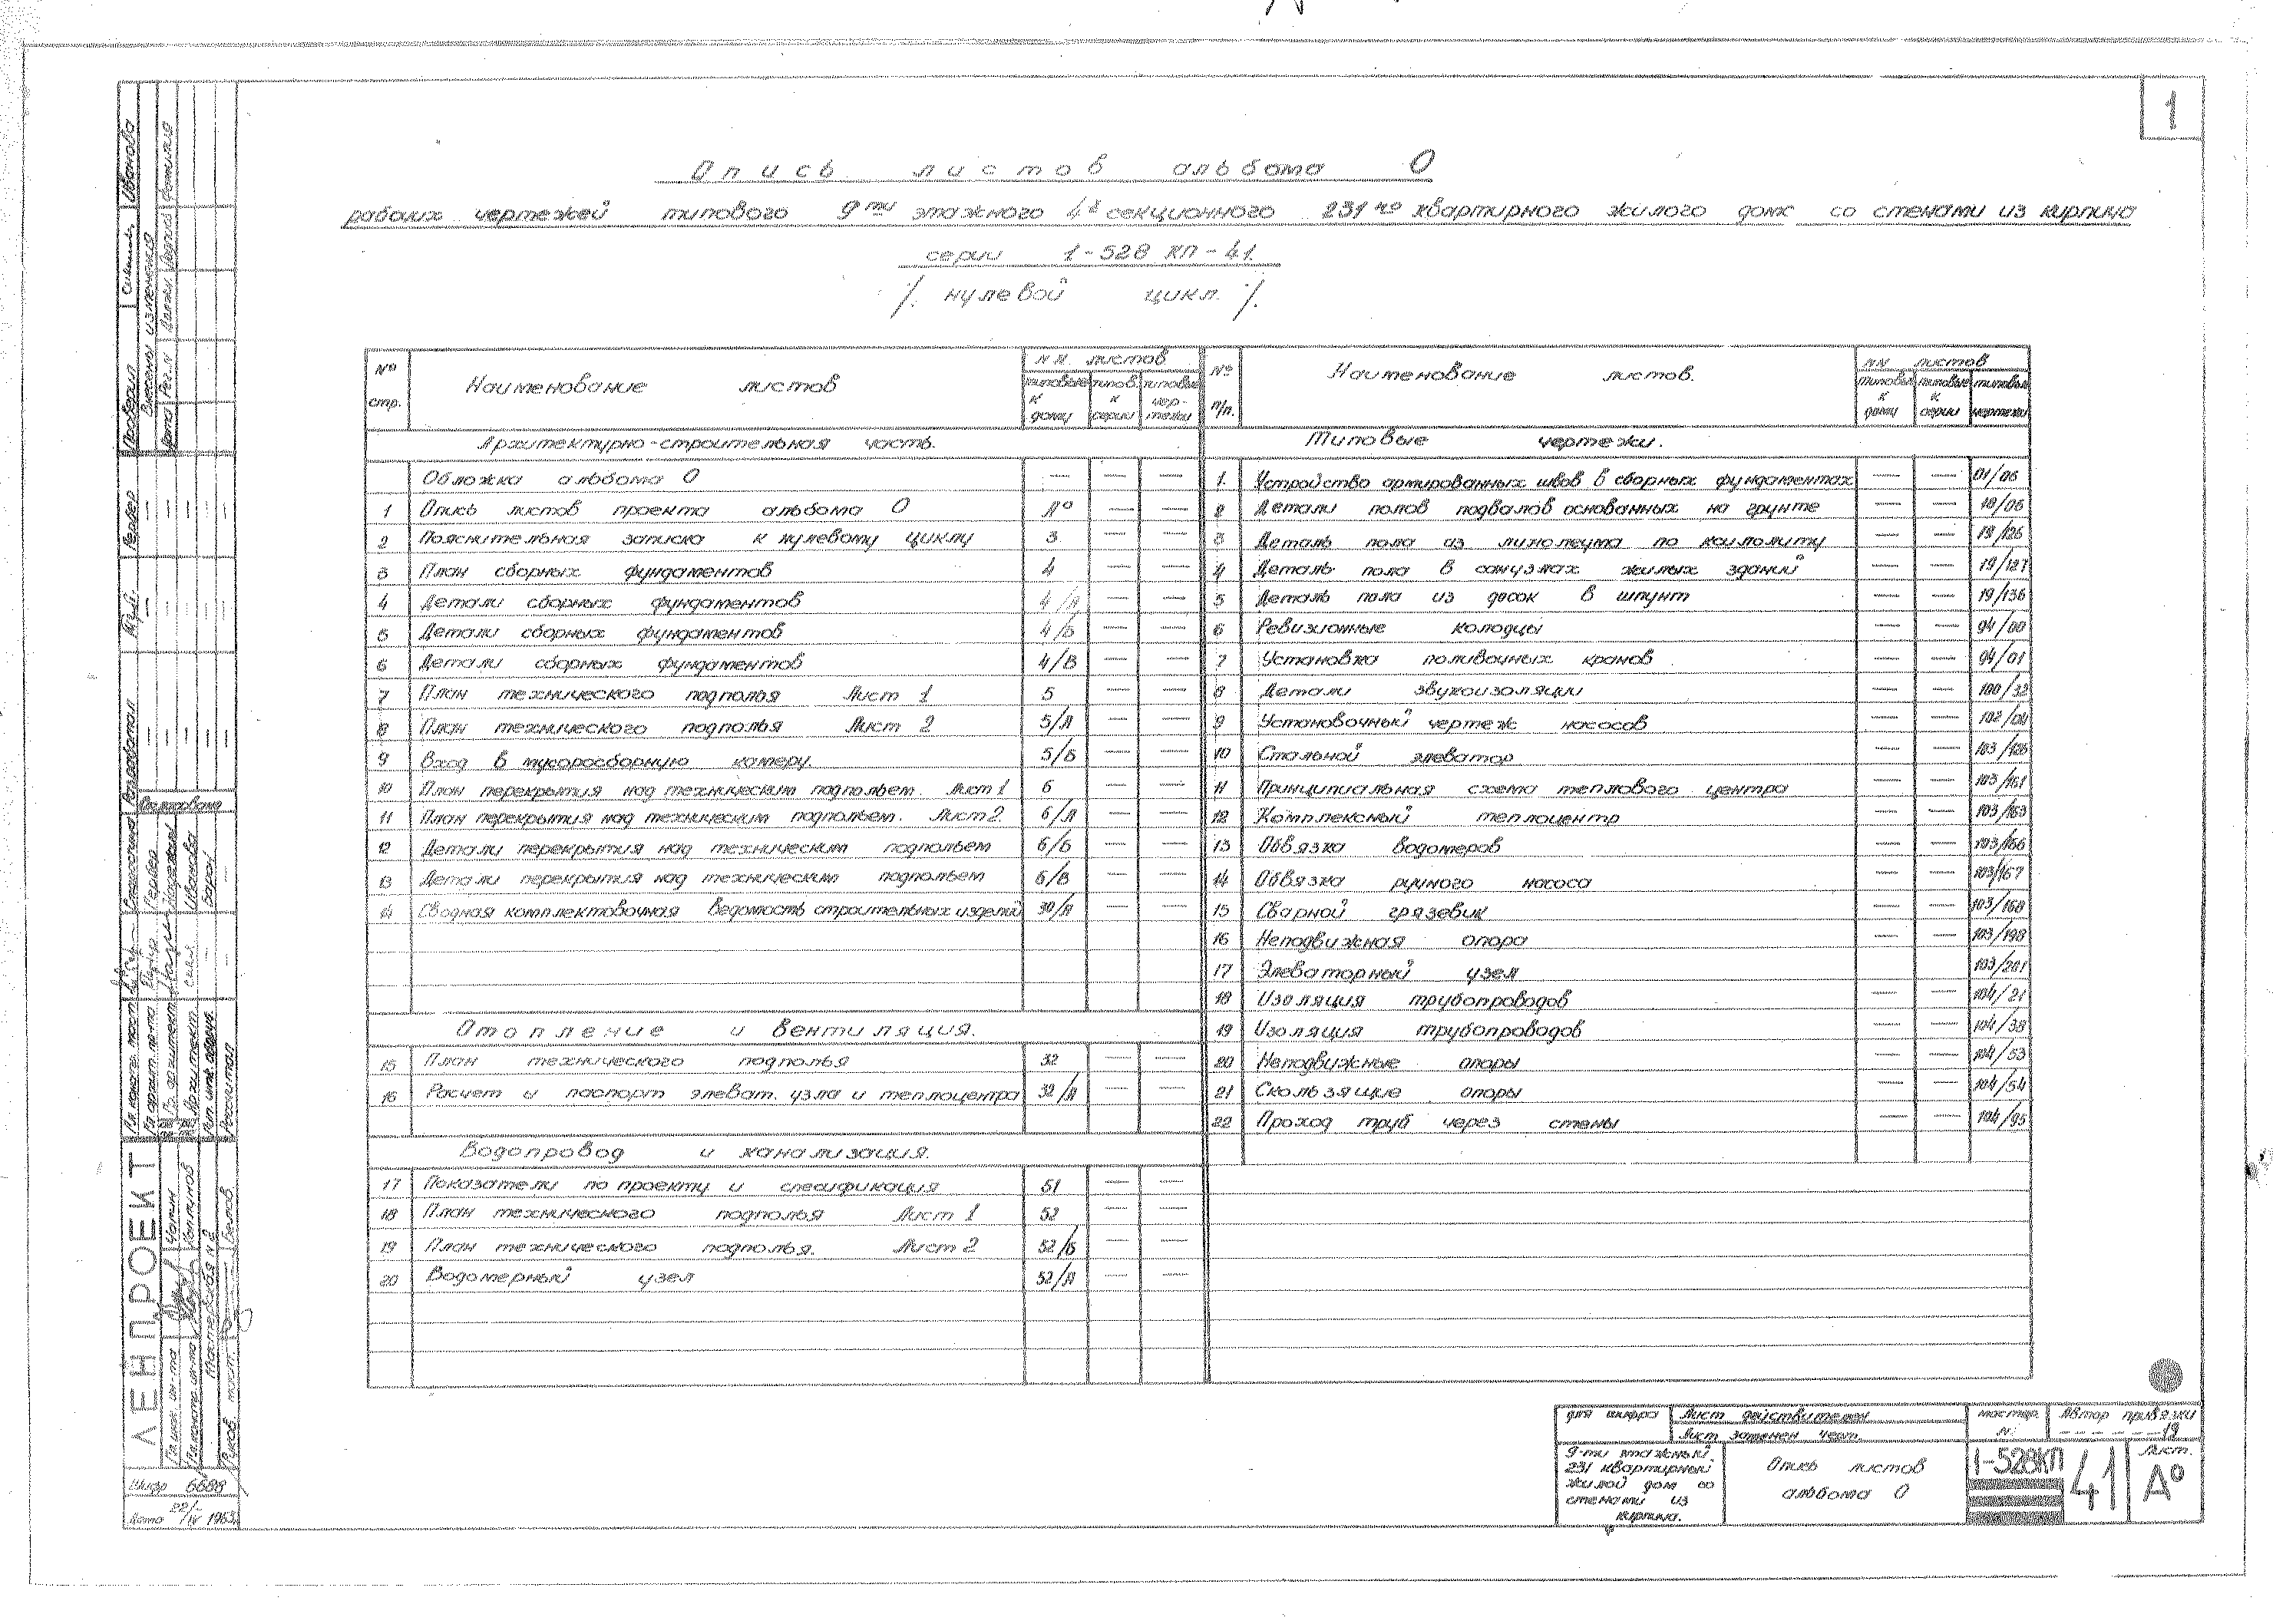 1
Опись листов альбома О
рабочих чертежей типового 9ти этажного 4х секционного 231но квартирного жилого дома со стенами из кирпича
серии 1-528 КП-41.
/. нулевой цикл. /.
№ стр.
Наименование листов
NN листов
типовые к дому
типов. к серии
типовые чертежи
Архитектурно-строительная часть.
Обложка альбома О — — —
1 Опись листов проекта альбома О А° — —
2 Пояснительная записка к нулевому циклу 3 — —
3 План сборных фундаментов 4 — —
4 Детали сборных фундаментов 4/А — —
5 Детали сборных фундаментов 4/Б — —
6 Детали сборных фундаментов 4/В — —
7 План технического подполья Лист 1 5 — —
8 План технического подполья Лист 2 5/А — —
9 Вход в мусоросборную камеру 5/Б — —
10 План перекрытия над техническим подпольем. Лист 1 6 — —
11 План перекрытия над техническим подпольем. Лист 2. 6/А — —
12 Детали перекрытия над техническим подпольем 6/Б — —
13 Детали перекрытия над техническим подпольем 6/В — —
14 Сводная комплектовочная ведомость строительных изделий 30/А — —
Отопление и вентиляция.
15 План технического подполья 32 — —
16 Расчет и паспорт элеват. узла и теплоцентра 32/А — —
Водопровод и канализация.
17 Показатели по проекту и спецификация 51 — —
18 План технического подполья Лист 1 52 — —
19 План технического подполья. Лист 2 52/Б — —
20 Водомерный узел 52/А — —
№ п/п.
Наименование листов.
NN листов
типовые к дому
типовые к серии
типовые чертежи
Типовые чертежи.
1. Устройство армированных швов в сборных фундаментах — — 01/06
2 Детали полов подвалов основанных на грунте — — 18/06
3 Деталь пола из линолеума по — — 19/126
4 Деталь пола в санузлах жилых зданий — — 19/127
5 Деталь пола из досок в шпунт — — 19/136
6 Ревизионные колодцы — — 94/00
7 Установка поливочных кранов — — 94/01
8 Детали звукоизоляции — — 100/32
9 Установочный чертеж насосов — — 102/04
10 Стальной элеватор — — 103/126
11 Принципиальная схема теплового центра — — 103/161
12 Комплексный теплоцентр — — 103/163
13 Обвязка водомеров — — 103/166
14 Обвязка ручного насоса — — 103/167
15 Сварной грязевик — — 103/168
16 Неподвижная опора — — 103/198
17 Элеваторный узел 103/201
18 Изоляция трубопроводов — — 104/21
19 Изоляция трубопроводов — — 104/38
20 Неподвижные опоры — — 104/53
21 Скользящие опоры — — 104/54
22 Проход труб через стены — — 104/95
для шифра
Лист действителен
Лист заменен черт.
мастер. N:
Автор привязки
19
9-ти этажный
231 квартирный
жилой дом со
стенами из
кирпича.
Опись листов
альбома О
1-528КП
41
Лист.
А°
ЛЕНПРОЕКТ
Мастерская N 2
Шифр 6688
Дата 22/IV 1963г
Проверил
Иванова
Внесены изменения
Дата Рег. N
Гербер
Разработал
Согласовано